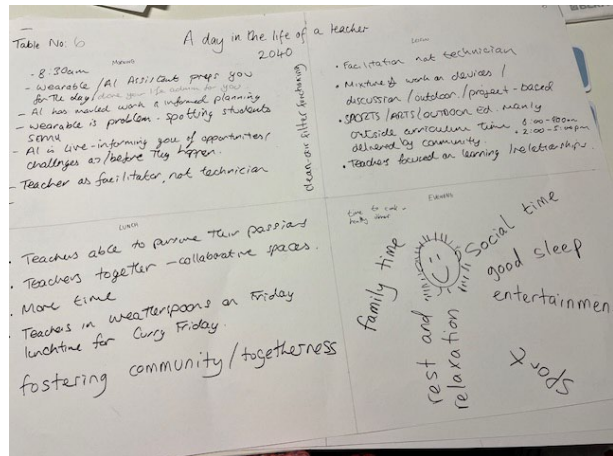 Table No: 6
A day in the life of a teacher
2040
MORNING
- 8:30am
- Wearable / AI Assistant preps you
for the day / done your life admin for you
- AI has marked work & informed planning
- Wearable is problem-spotting students
- AI is live-informing you of opportunities/
challenges as/before they happen.
- Teacher as facilitator, not technician
clean-air filter functioning
• Facilitation not technician
• Mixture of work on devices /
discussion / outdoor / project-based
• SPORTS / ARTS / OUTDOOR ED. mainly
outside curriculum time
delivered by community.
• 2:00-5:00pm
• Teachers focused on learning / relationships.
LUNCH
• Teachers able to pursue their passions
• Teachers together - collaborative spaces.
• More time
• Teachers in weatherspoons on Friday
lunchtime for Curry Friday.
fostering community / togetherness
EVENING
family time
rest and
relaxation
Social time
good sleep
entertainmen
Sport